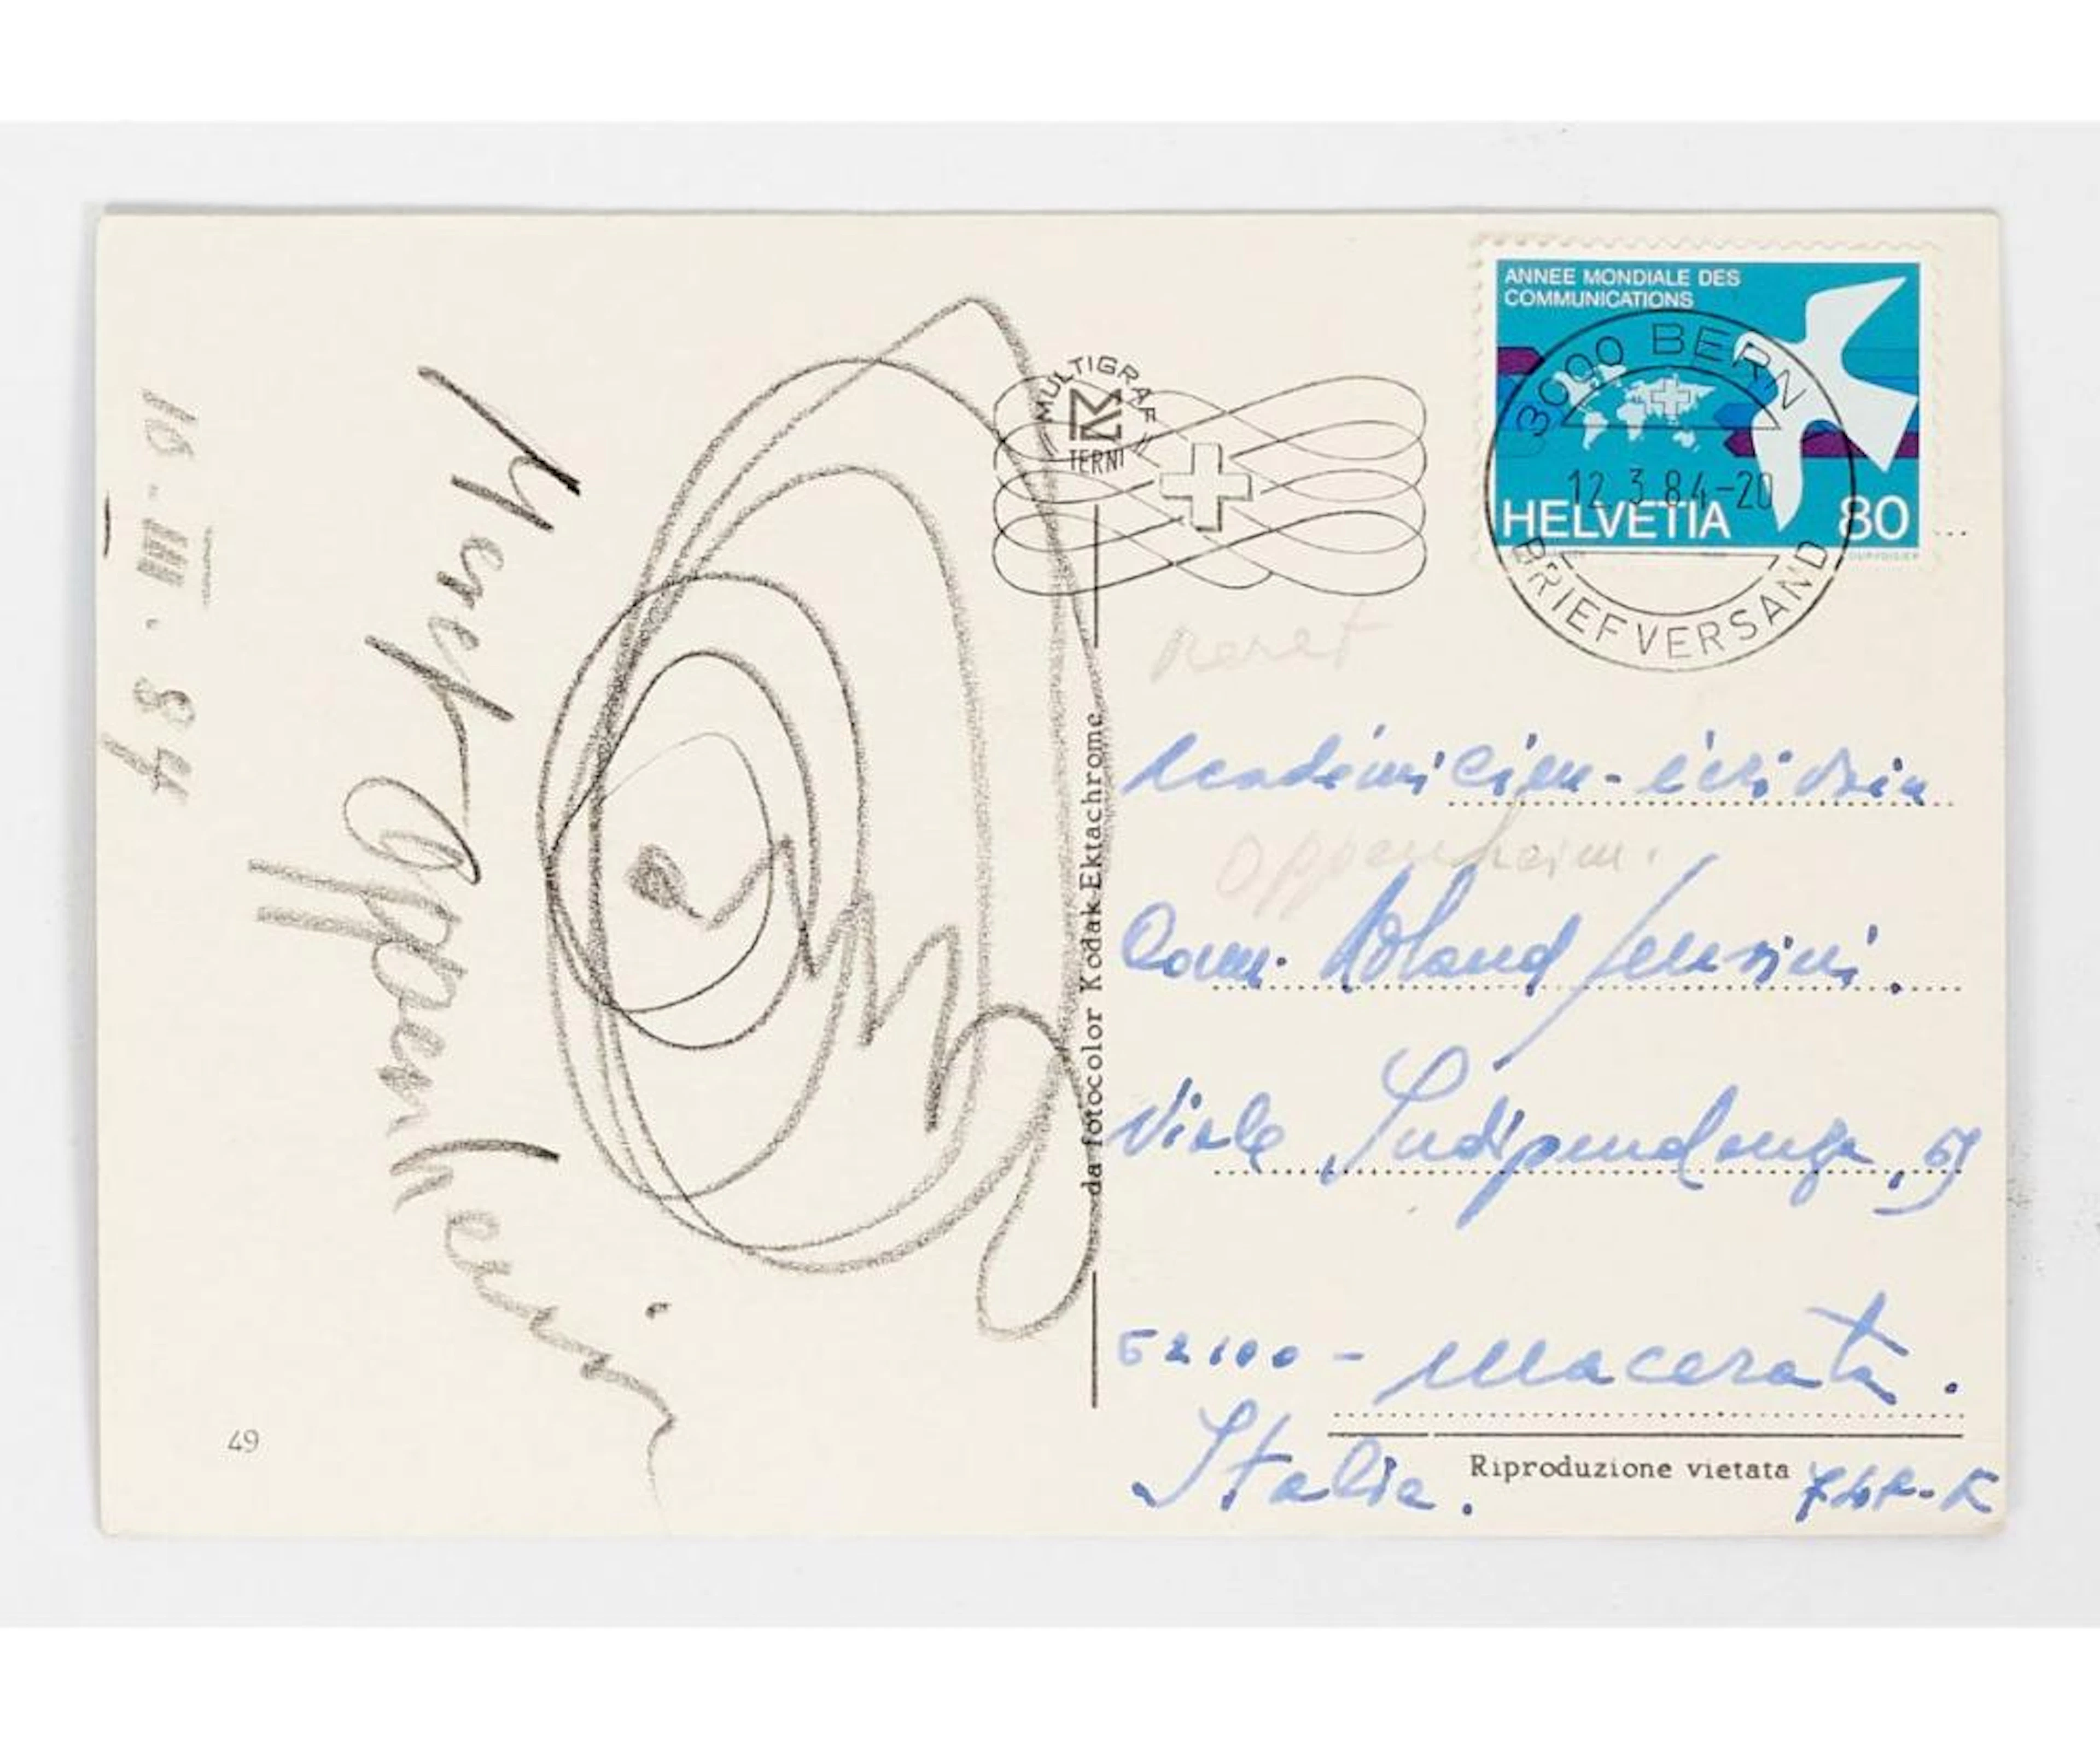 10 · III · 84
Meret
Oppenheim
49
MULTIGRAF
TERNI
da fotocolor Kodak Ektachrome
ANNEE MONDIALE DES
COMMUNICATIONS
HELVETIA 80
3000 BERN
12.3.84-20
BRIEFVERSAND
Meret
Oppenheim.
Comm. Roland
Viale Indipendenza,
62100 - Macerata.
Italia.
Riproduzione vietata